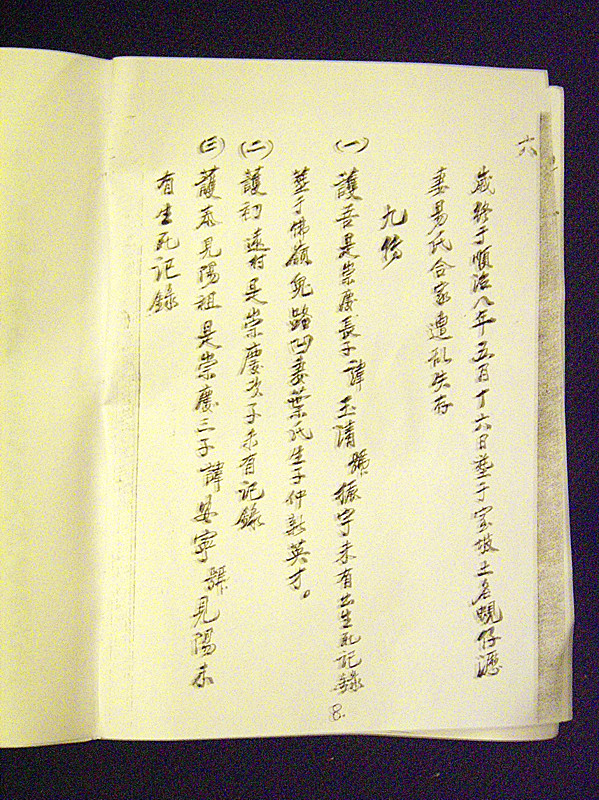 六
歲終于順治八年五月十六日塟于宝坡土名蜆仔瀝
妻易氏合家遭乱失存
九修
(一) 護吾是崇慶長子諱玉清號振宇未有出生死記錄
塟于佛嶺免路凹妻葉氏生子仲新英才。
(二) 護初遠村是崇慶次子未有記錄
(三) 護泰見陽祖是崇慶三子諱安寧號見陽未
有生死記錄
8.